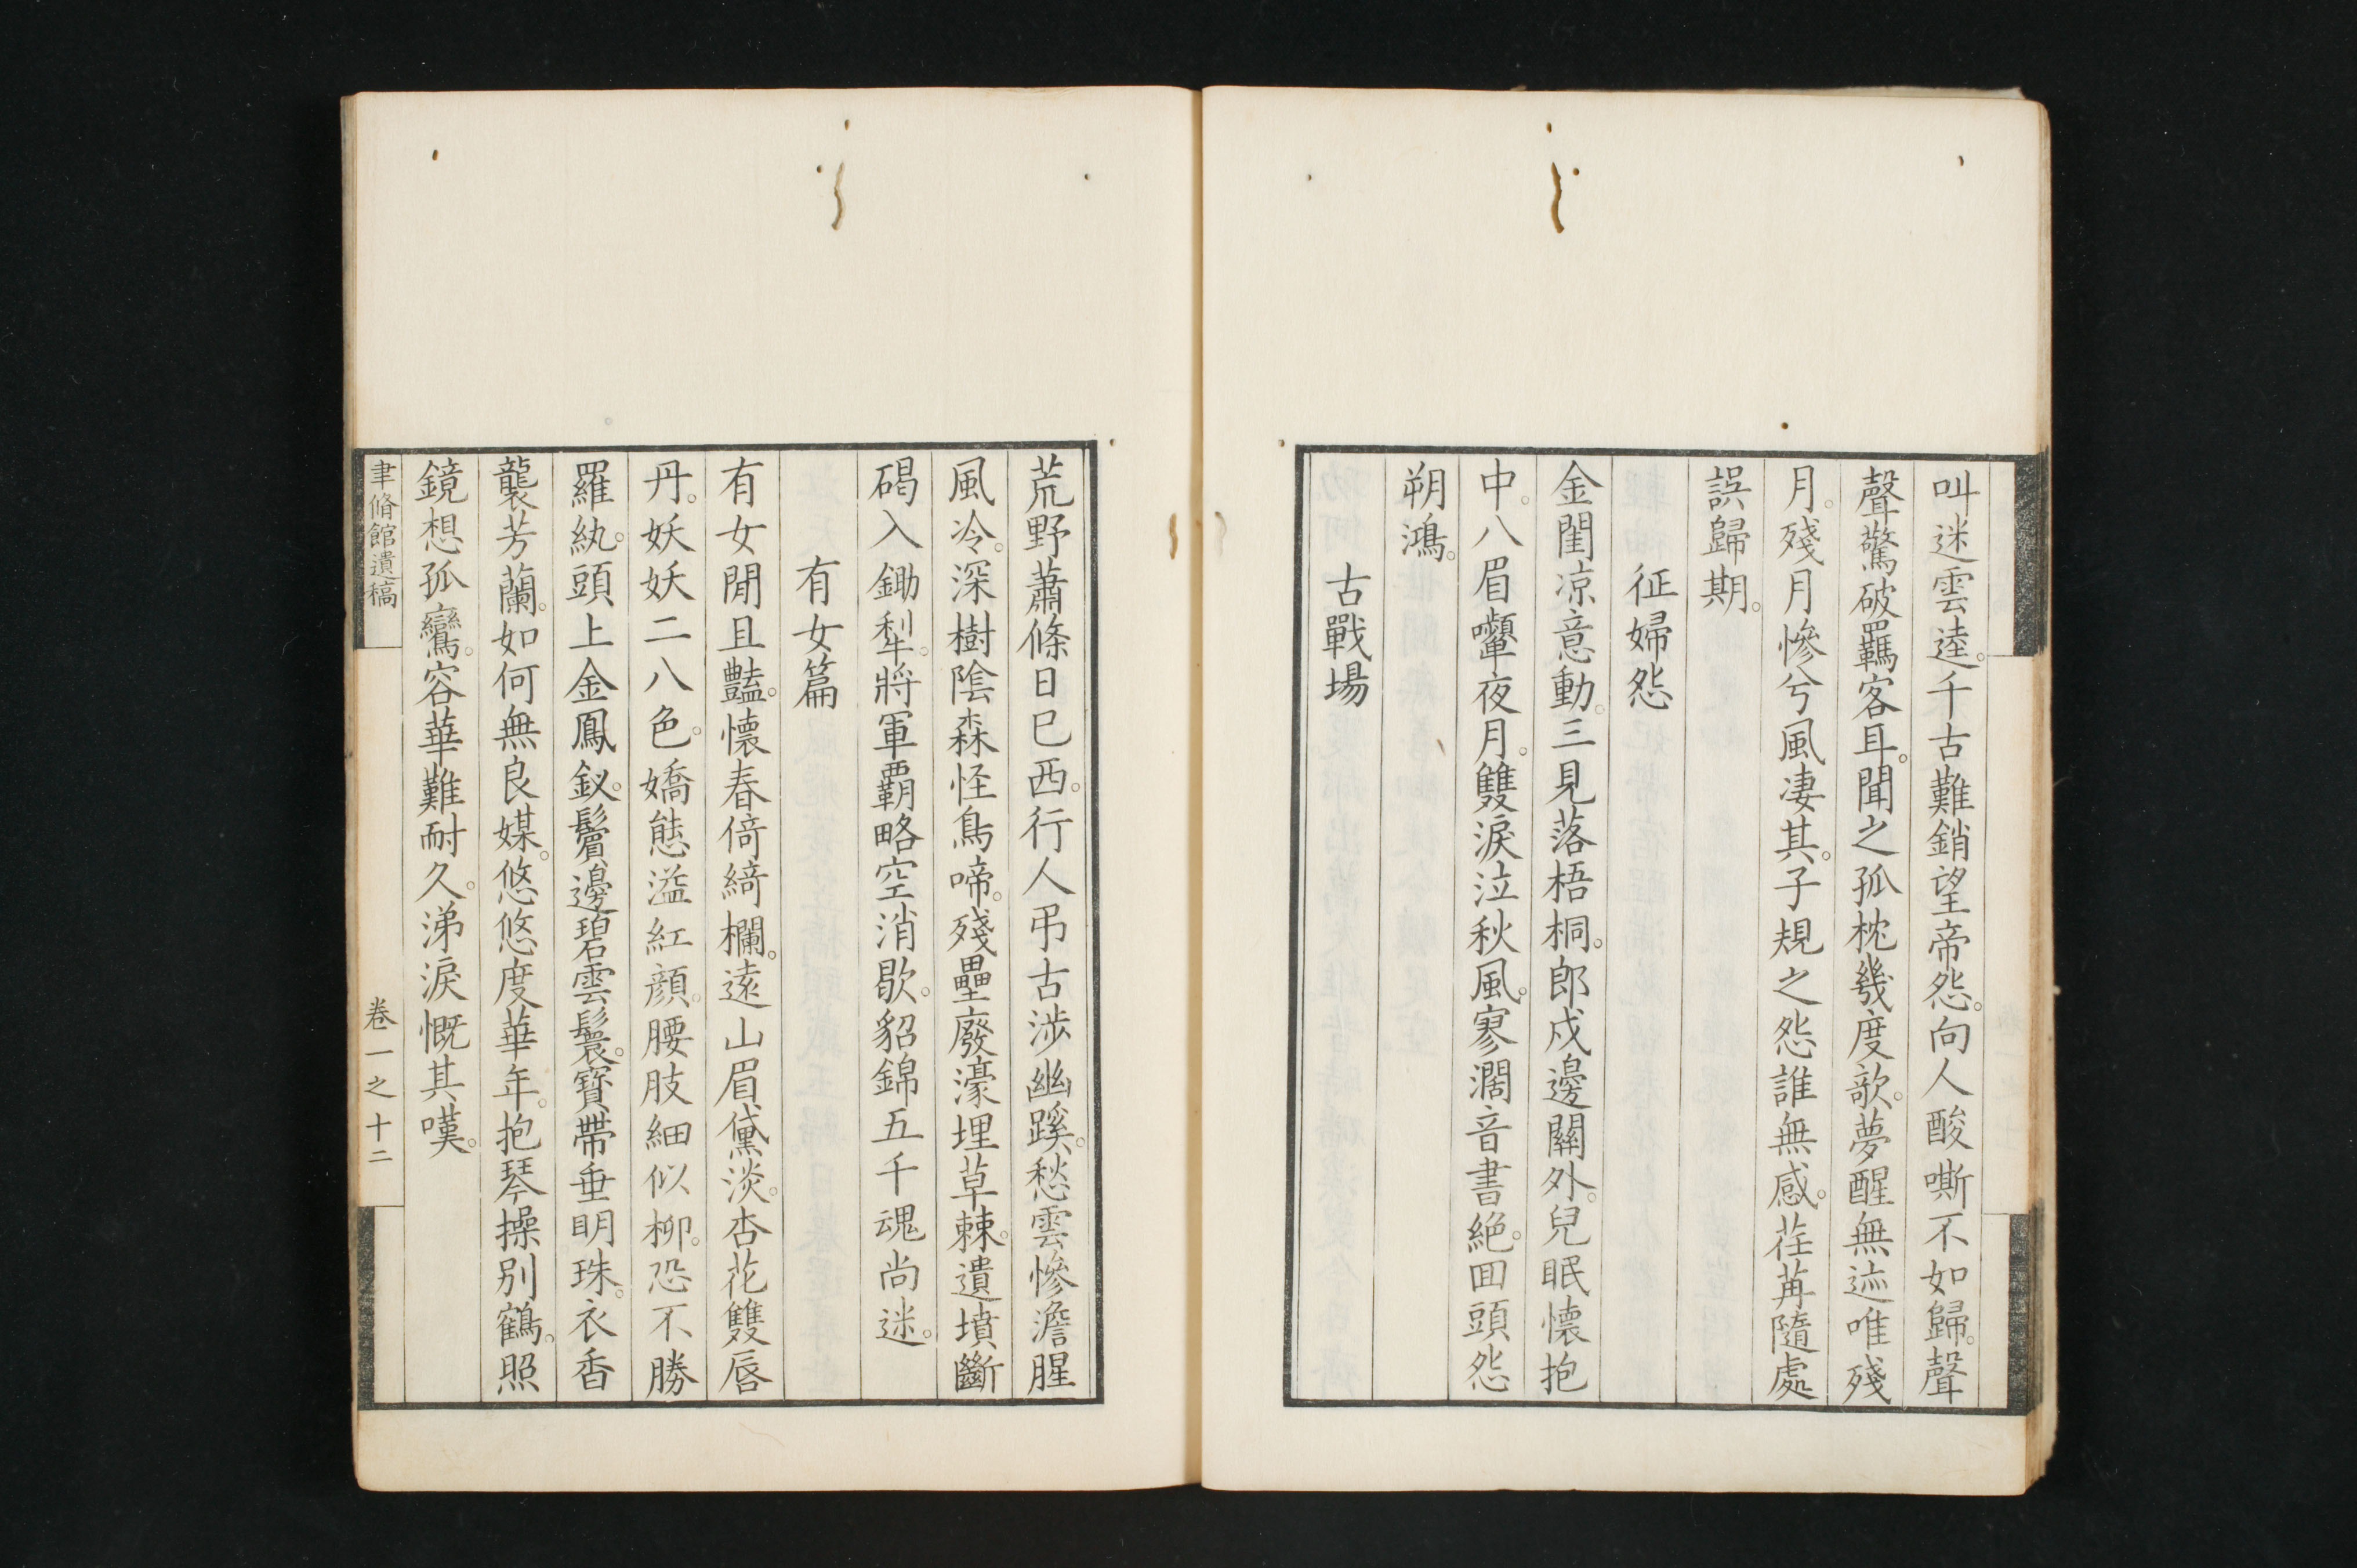 叫迷雲逵。千古難銷望帝怨。向人酸嘶不如歸。聲
聲驚破羈客耳。聞之孤枕幾度欹。夢醒無迹唯殘
月。殘月慘兮風凄其。子規之怨誰無感。荏苒隨處
誤歸期。
征婦怨
金閨凉意動。三見落梧桐。郎戍邊關外。兒眠懷抱
中。八眉顰夜月。雙淚泣秋風。寥濶音書絕。囬頭怨
朔鴻。
古戰場
荒野蕭條日已西。行人弔古涉幽蹊。愁雲慘澹腥
風冷。深樹陰森怪鳥啼。殘壘廢濠埋草棘。遺墳斷
碣入鋤犁。將軍覇略空消歇。貂錦五千魂尚迷。
有女篇
有女閒且豔。懷春倚綺欄。遠山眉黛淡。杏花雙唇
丹。妖妖二八色。嬌態溢紅顔。腰肢細似柳。恐不勝
羅紈。頭上金鳳釵。鬢邊碧雲鬟。寶帶垂明珠。衣香
襲芳蘭。如何無良媒。悠悠度華年。抱琴操別鶴。照
鏡想孤鸞。容華難耐久。涕淚慨其嘆。
聿脩館遺稿
卷一之十二